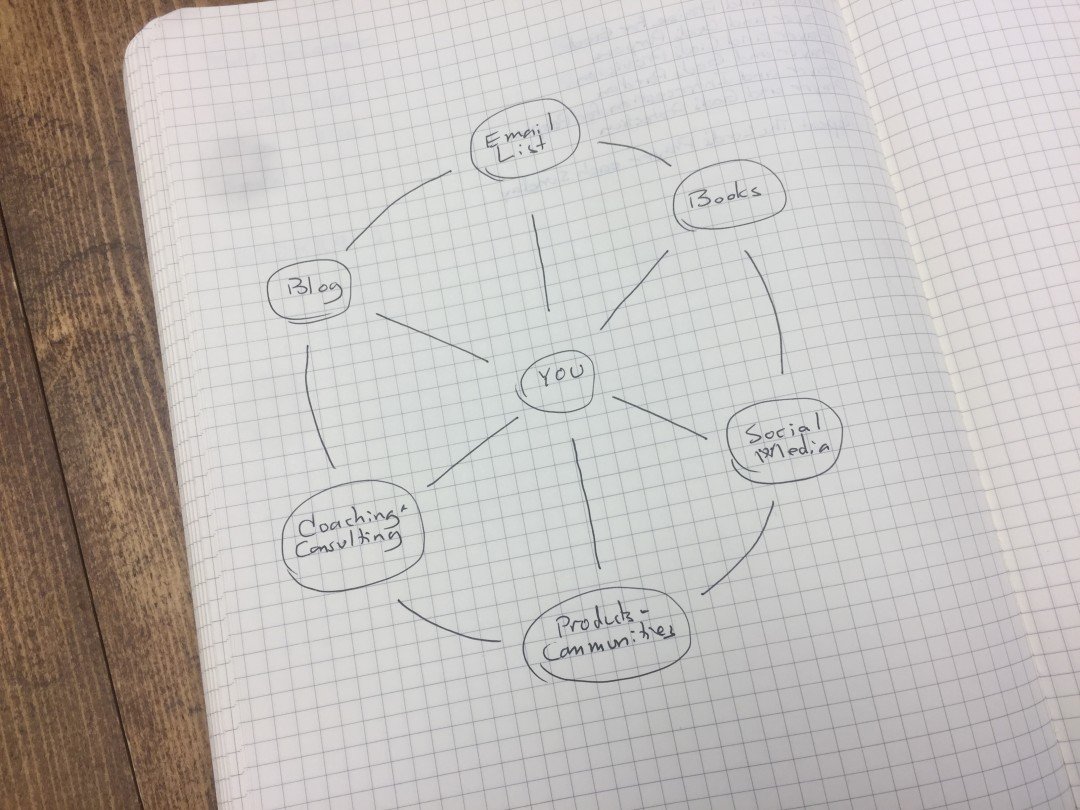 Email
List
Books
Blog
YOU
Social
Media
Coaching-
Consulting
Products-
Communities